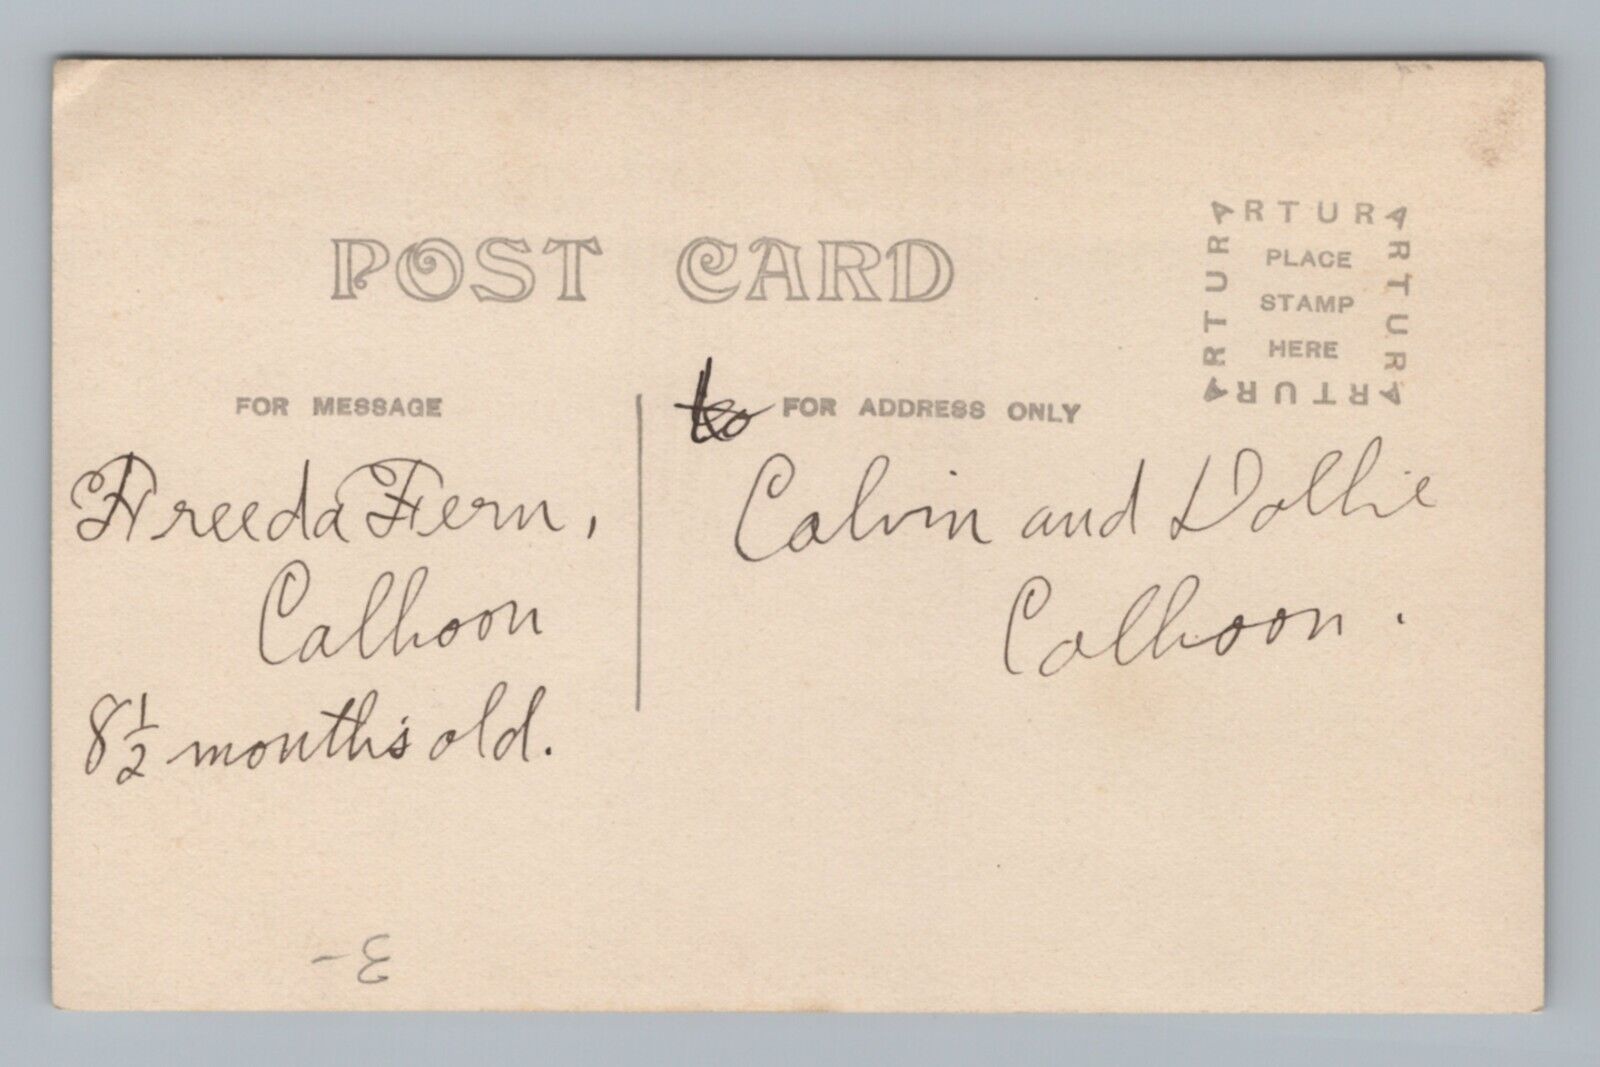 POST CARD
ARTURA
ARTURA
ARTURA
ARTURA
PLACE
STAMP
HERE
FOR MESSAGE
Freeda Fern,
Calhoon
8 1/2 month's old.
to FOR ADDRESS ONLY
Calvin and Dollie
Calhoon.
3-